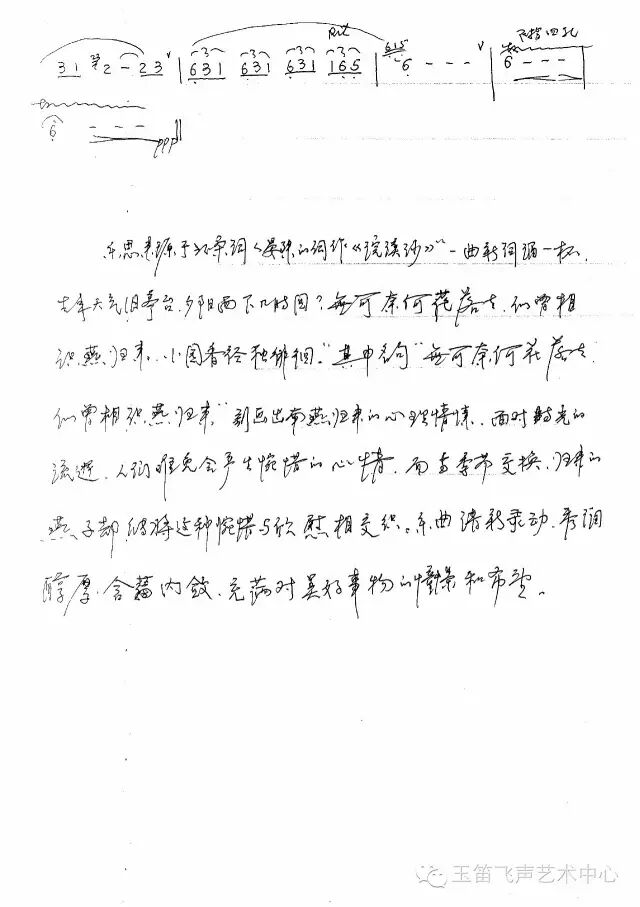 31 2 - 23 | 631 631 631 165 | 6 - - - | 6 - - -
Rit
615
6 - - - ppp
乐思来源于北宋词人晏殊的词作《浣溪沙》“一曲新词酒一杯,
去年天气旧亭台.夕阳西下几时回?无可奈何花落去.似曾相
识燕归来.小园香径独徘徊.”其中名句“无可奈何花落去.
似曾相识燕归来”刻画出南燕归来的心理情愫.面对时光的
流逝.人们难免会产生惋惜的心情.而当季节交换.归来的
燕子却能将这种惋惜与欣慰相交织.乐曲清新灵动.音调
醇厚.含蓄内敛.充满对美好事物的憧憬和希望.
玉笛飞声艺术中心